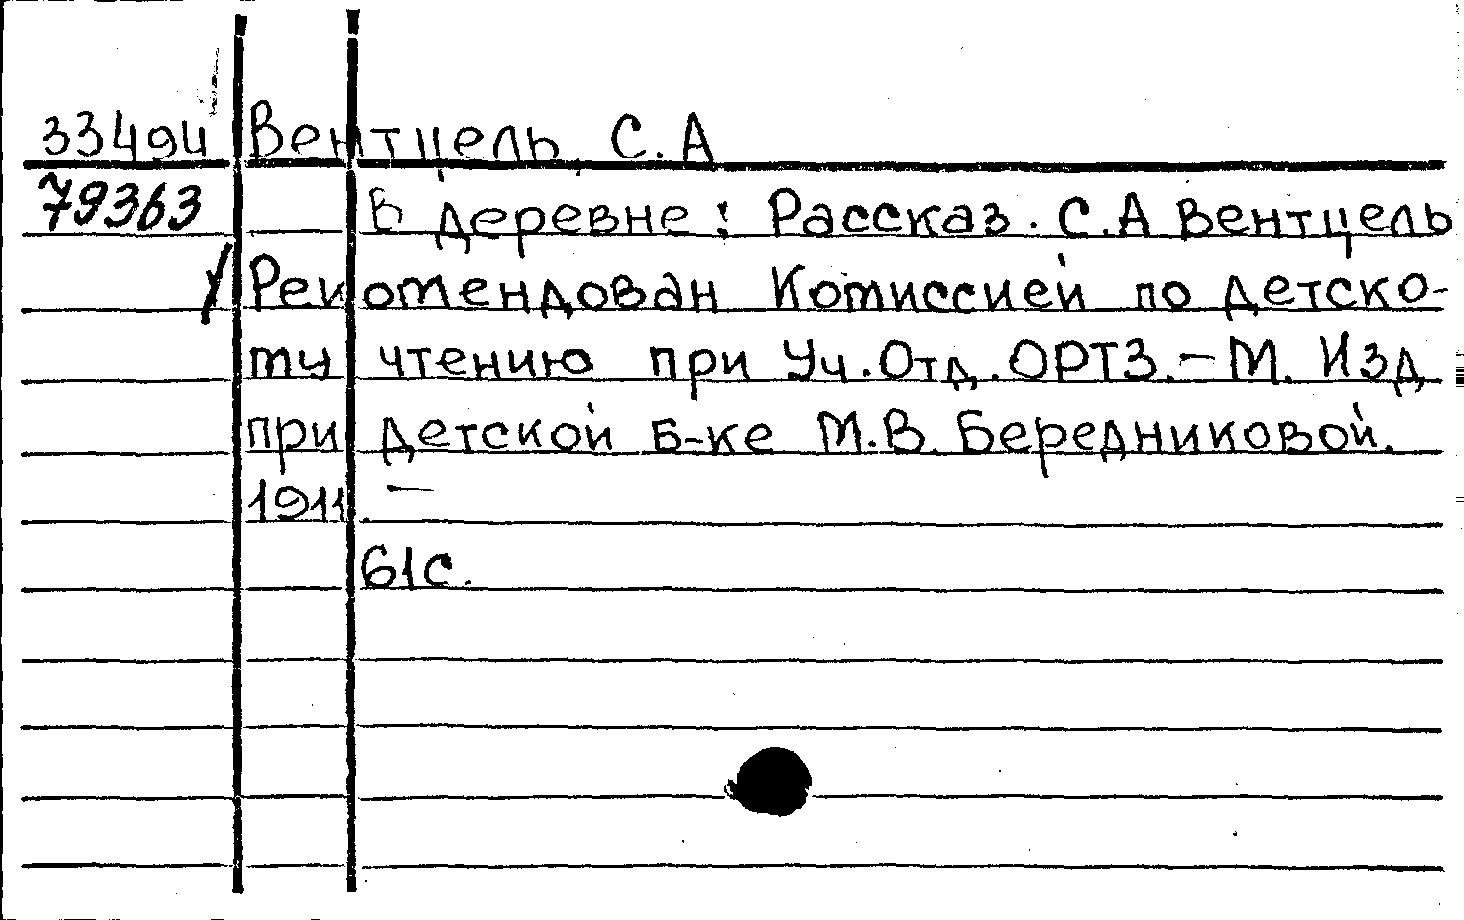 33494 Вентцель, С.А
79363 В деревне: Рассказ. С.А Вентцель
Рекомендован Комиссией по детско-
му чтению при Уч.Отд.ОРТЗ.-М. Изд
при детской Б-ке М.В. Бередниковой.
1911 -
61с.